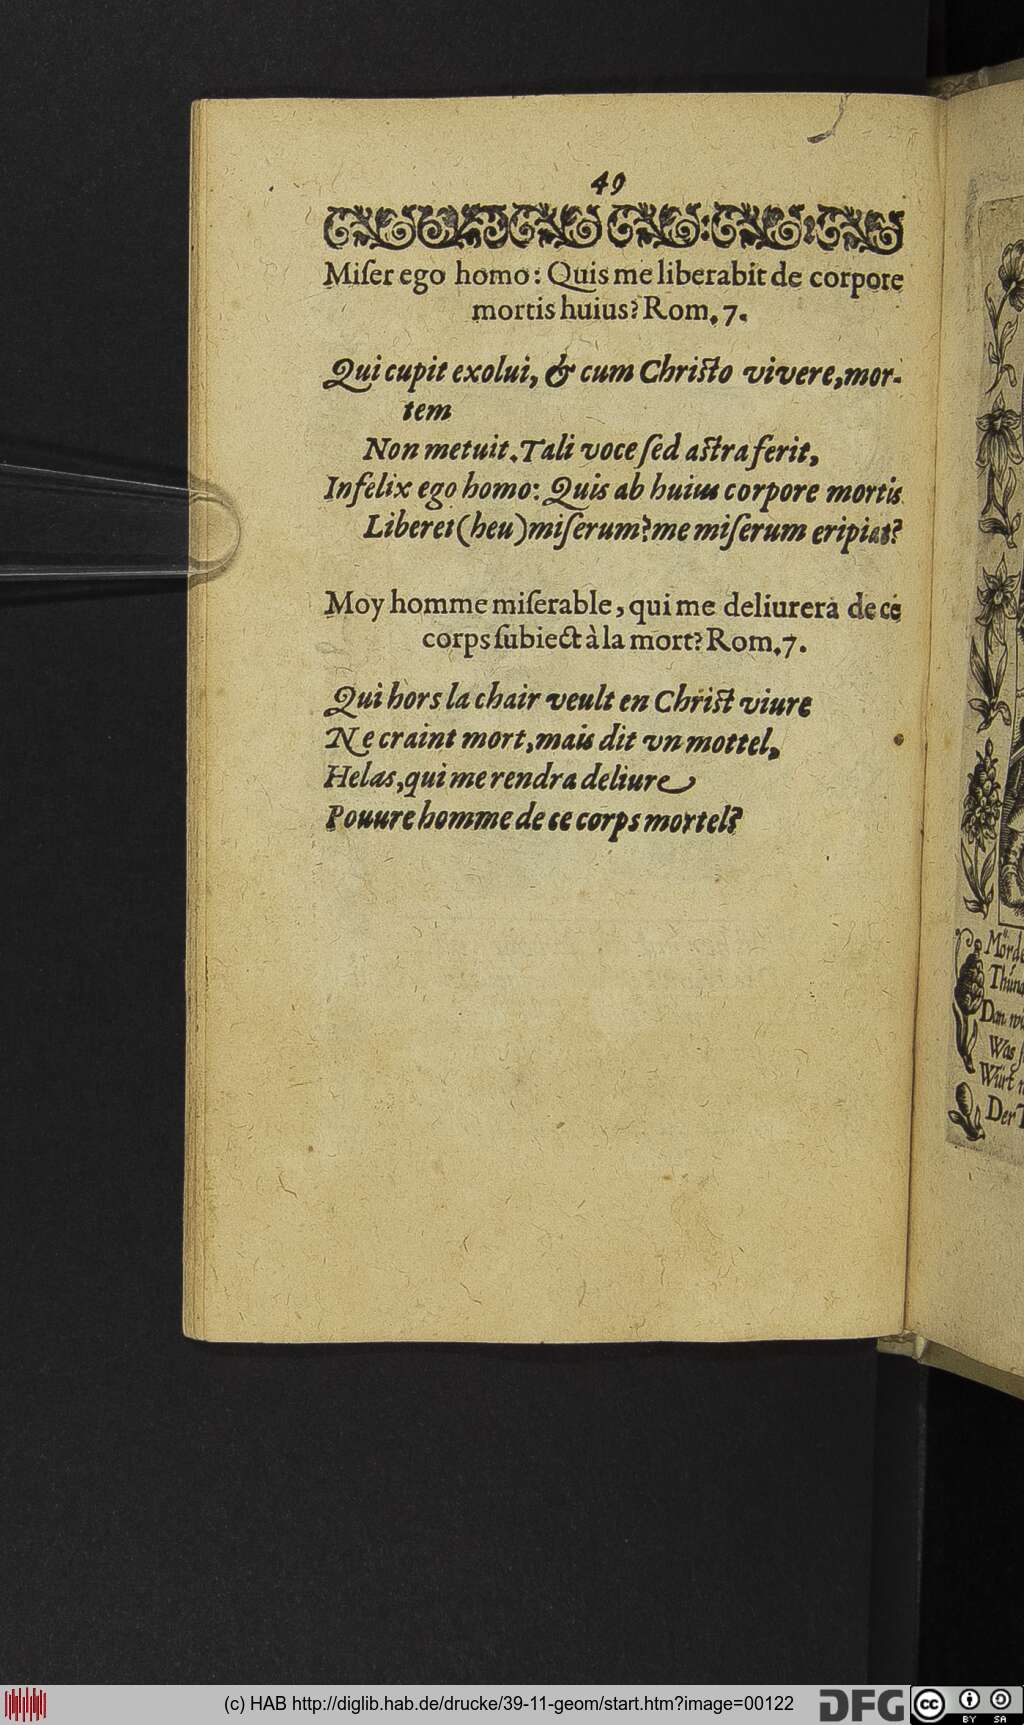 49
Miſer ego homo: Quis me liberabit de corpore
mortis huius? Rom. 7.
Qui cupit exolui, & cum Chriſto vivere, mor-
tem
Non metuit. Tali voce ſed aſtra ferit,
Infelix ego homo: Quis ab huius corpore mortis
Liberet (heu) miſerum? me miſerum eripiat?
Moy homme miſerable, qui me deliurera de ce
corps ſubiect à la mort? Rom. 7.
Qui hors la chair veult en Chriſt viure
Ne craint mort, mais dit vn mottel,
Helas, qui me rendra deliure
Pouure homme de ce corps mortel?
Mörde
Thun
Dan
Was
Würt
Der
(c) HAB http://diglib.hab.de/drucke/39-11-geom/start.htm?image=00122
DFG
cc
BY SA